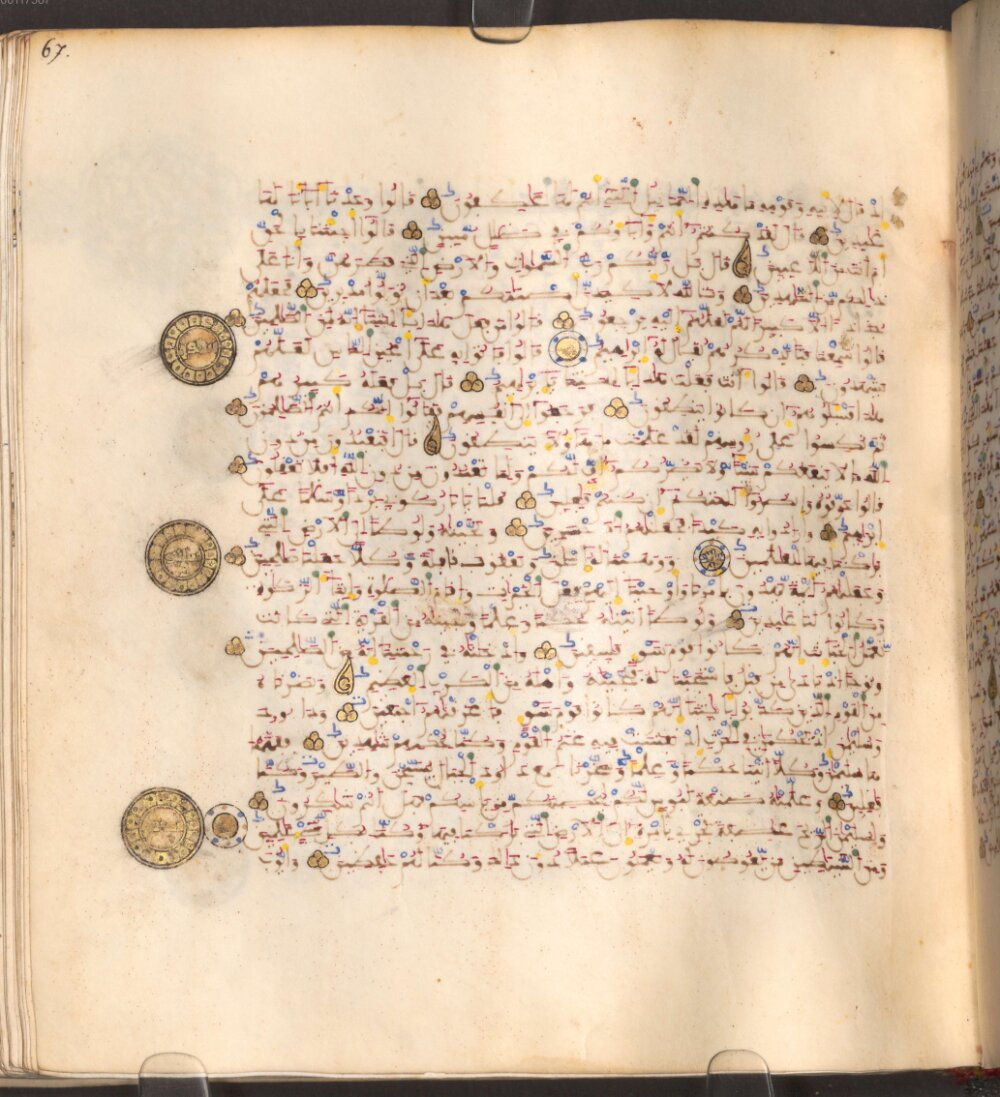 67.
إذ قال لأبيه وقومه ما هذه التماثيل التي أنتم لها عكفون قالوا وجدنا ءاباءنا لها
عبدين قال لقد كنتم أنتم وءاباؤكم في ضلل مبين قالوا أجئتنا بالحق
أم أنت من اللعبين قال بل ربكم رب السموت والأرض الذي فطرهن وأنا على
ذلكم من الشهدين وتالله لأكيدن أصنمكم بعد أن تولوا مدبرين فجعلهم
جذاذا إلا كبيرا لهم لعلهم إليه يرجعون قالوا من فعل هذا بالهتنا إنه لمن الظلمين
قالوا سمعنا فتى يذكرهم يقال له إبرهيم قالوا فأتوا به على أعين الناس لعلهم
يشهدون قالوا ءأنت فعلت هذا بالهتنا يإبرهيم قال بل فعله كبيرهم
هذا فسئلوهم إن كانوا ينطقون فرجعوا إلى أنفسهم فقالوا إنكم أنتم الظلمون
ثم نكسوا على رءوسهم لقد علمت ما هؤلاء ينطقون قال أفتعبدون من دون
الله ما لا ينفعكم شيئا ولا يضركم أف لكم ولما تعبدون من دون الله أفلا تعقلون
قالوا حرقوه وانصروا ءالهتكم إن كنتم فعلين قلنا ينار كوني بردا وسلما على
إبرهيم وأرادوا به كيدا فجعلنهم الأخسرين ونجينه ولوطا إلى الأرض التي
بركنا فيها للعلمين ووهبنا له إسحق ويعقوب نافلة وكلا جعلنا صلحين
وجعلنهم أئمة يهدون بأمرنا وأوحينا إليهم فعل الخيرت وإقام الصلوة وإيتاء الزكوة
وكانوا لنا عبدين ولوطا ءاتينه حكما وعلما ونجينه من القرية التي كانت
تعمل الخبئث إنهم كانوا قوم سوء فسقين وأدخلنه في رحمتنا إنه من الصلحين
ونوحا إذ نادى من قبل فاستجبنا له فنجينه وأهله من الكرب العظيم ونصرنه
من القوم الذين كذبوا بايتنا إنهم كانوا قوم سوء فأغرقنهم أجمعين وداوود
وسليمن إذ يحكمن في الحرث إذ نفشت فيه غنم القوم وكنا لحكمهم شهدين ففهمنـ
ها سليمن وكلا ءاتينا حكما وعلما وسخرنا مع داوود الجبال يسبحن والطير وكنا
فعلين وعلمنه صنعة لبوس لكم ليحصنكم من بأسكم فهل أنتم شكرون
ولسليمن الريح عاصفة تجري بأمره إلى الأرض التي بركنا فيها وكنا بكل شيء علمين
ومن الشيطين من يغوصون له ويعملون عملا دون ذلك وكنا لهم حفظين وأيوب